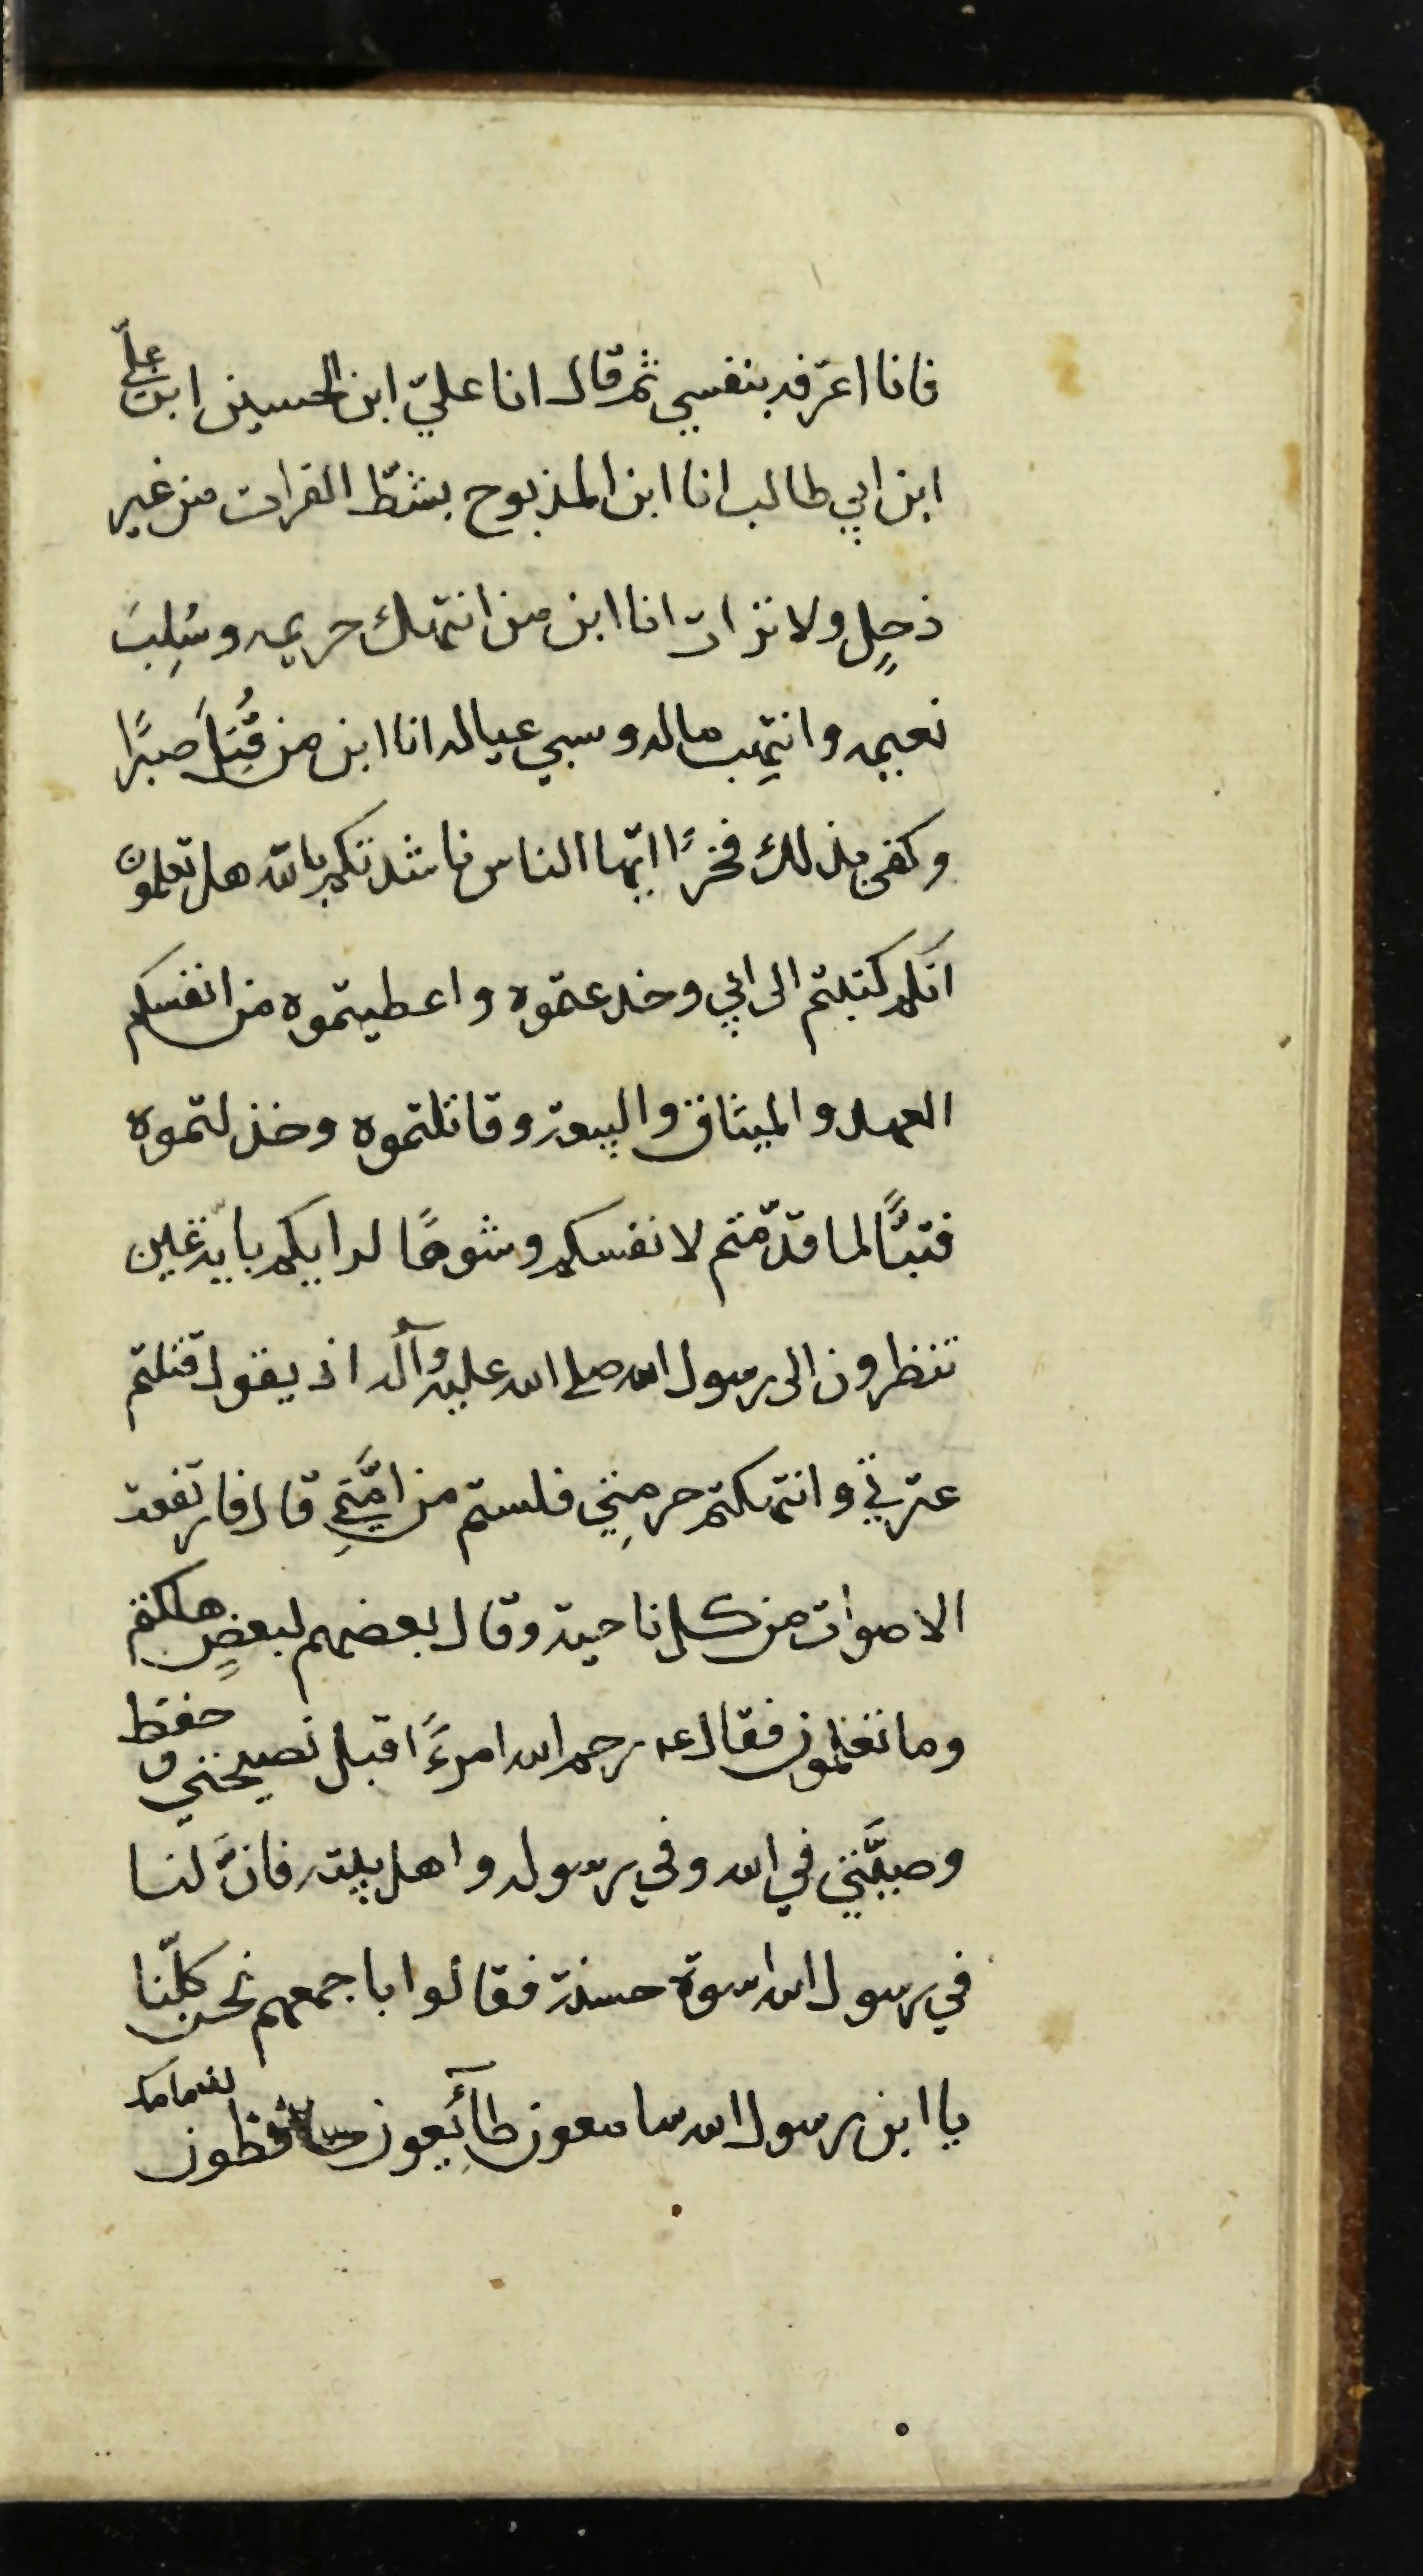 فانا اعرّفه بنفسي ثم قال انا عليّ ابن الحسين ابن عليّ
ابن ابي طالب انا ابن المذبوح بشطّ الفرات من غير
ذحلٍ ولا تراث انا ابن من انتهك حريمه وسُلِبَ
نعيمه وانتِهب ماله وسبي عياله انا ابن من قُتِلَ صبرًا
وكفى بذلك فخرًا ايّها الناس ناشدتكم بالله هل تعلمون
انّكم كتبتم الى ابي وخدعتموه واعطيتموه من انفسكم
العهد والميثاق والبيعة وقاتلتموه وخذلتموه
فتبًّا لما قدّمتم لانفسكم وشوهًا لرايكم بايّة عين
تنظرون الى رسول الله صلى الله عليه وآله اذ يقول قتلتم
عترتي وانتهكتم حرمتِي فلستم من امّتِي قال فارتفعت
الاصوات من كل ناحية وقال بعضهم لبعضٍ هلكتم
وما تعلمون فقال ع رحم الله امرءً اقبل نصيحتي وحفظ
وصيّتي في الله وفي رسوله واهل بيته فانّ لنا
في رسول الله اسوة حسنة فقالوا باجمعهم نحن كلّنا
يا ابن رسول الله سامعون طآئِعون حافظون لذمامك